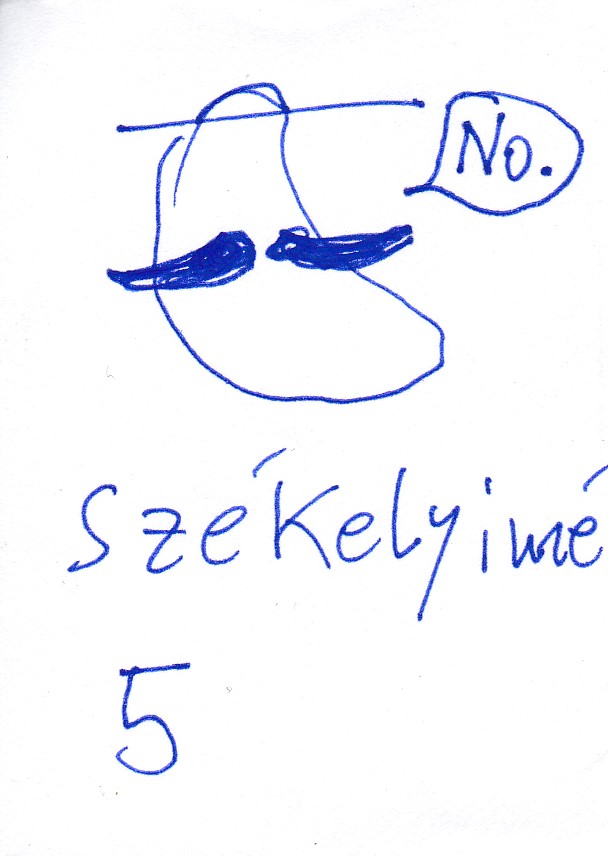 No.
Székelyimé
5